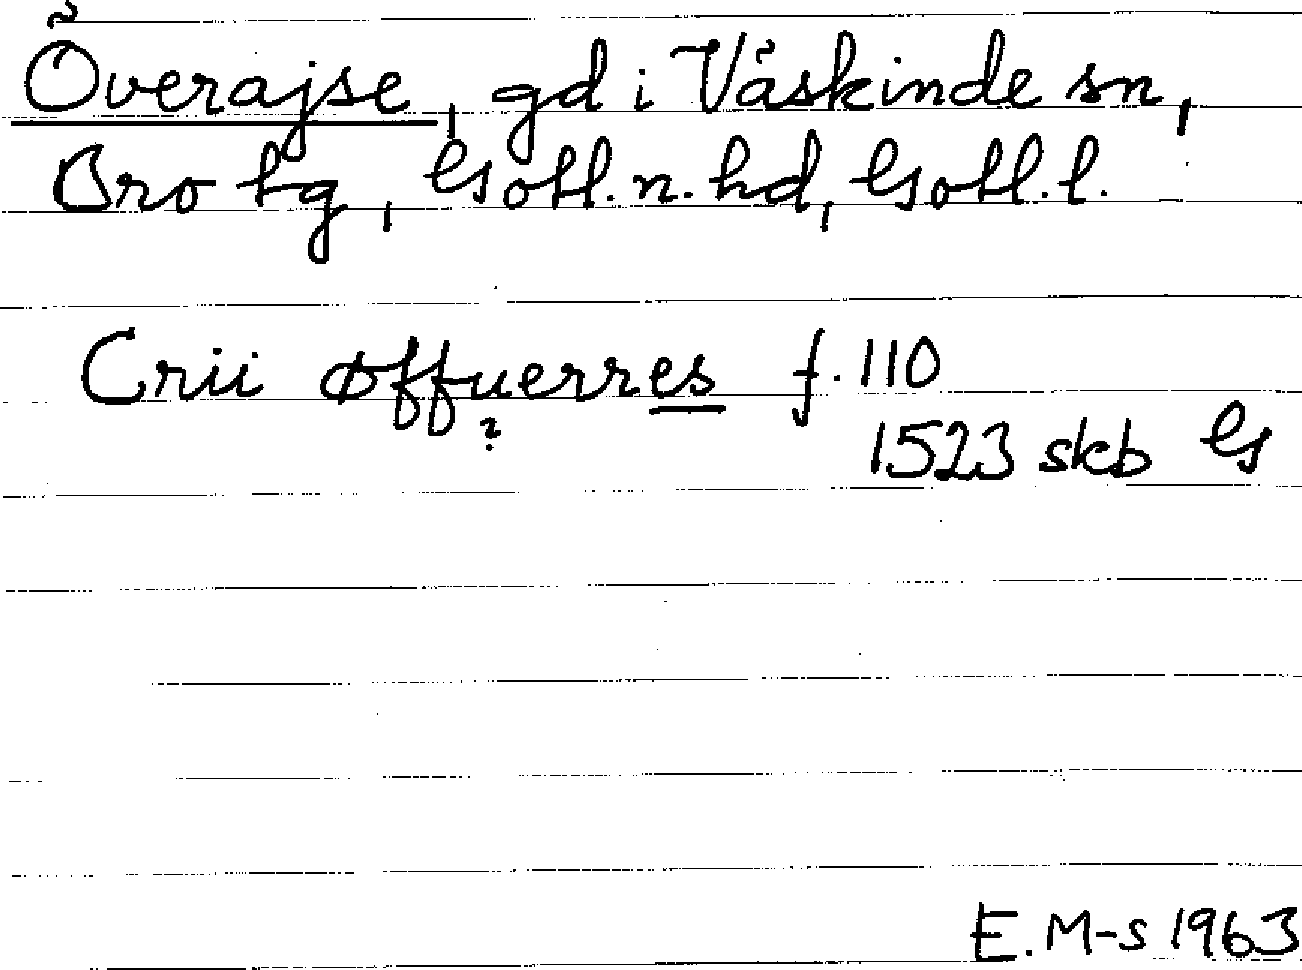 Överajse, gd i Väskinde sn,
Bro tg, Gotl. n. hd, Gotl. l.
Crii øffuerres f. 110
?
1523 skb G
E. M-s 1963